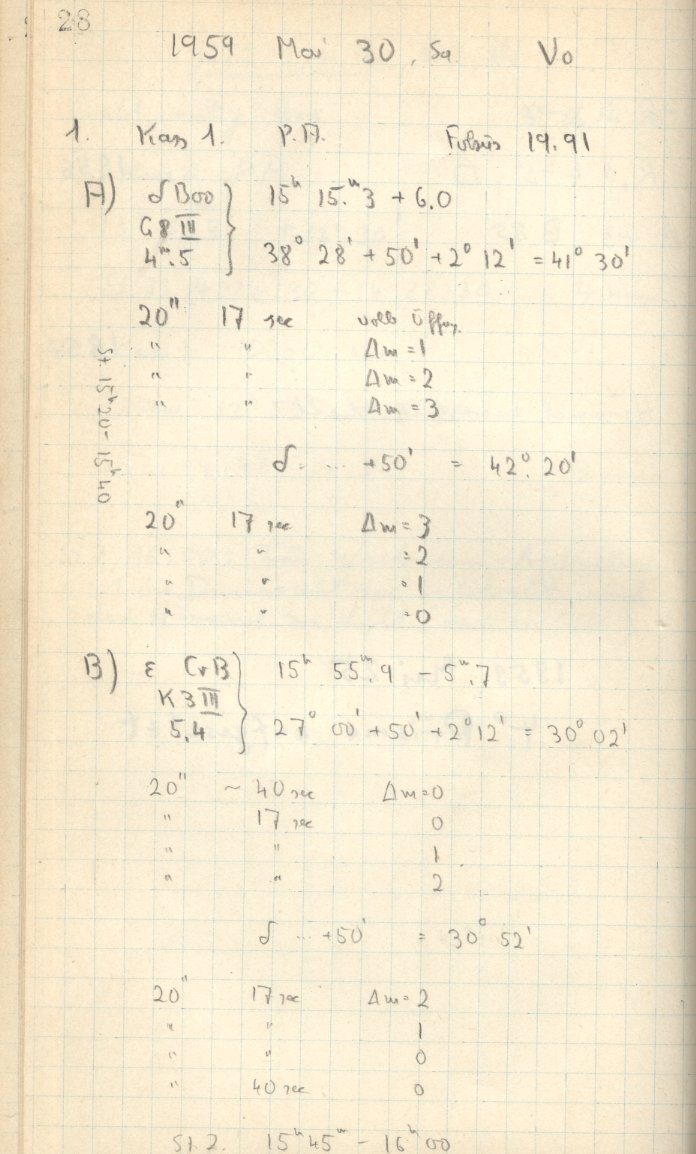 28
1959 Mai 30, Sa Vo
1. Kass 1. P.A. Fokus 19.91
A) δ Boo 15ʰ 15.ᵐ3 + 6.0
G8 III
4ᵐ.5 38° 28' + 50' + 2° 12' = 41° 30'
20" 17 sec volle Öffng.
" " Δm = 1
" " Δm = 2
" " Δm = 3
St. 15ʰ20 - 15ʰ40
δ ... +50' = 42° 20'
20" 17 sec Δm = 3
" " = 2
" " = 1
" " = 0
B) ε CrB 15ʰ 55ᵐ.9 - 5ᵐ.7
K3 III
5.4 27° 00' + 50' + 2° 12' = 30° 02'
20" ~ 40 sec Δm = 0
" 17 sec 0
" " 1
" " 2
δ ... +50' = 30° 52'
20" 17 sec Δm = 2
" " 1
" " 0
" 40 sec 0
St. 2. 15ʰ 45ᵐ - 16ʰ 00